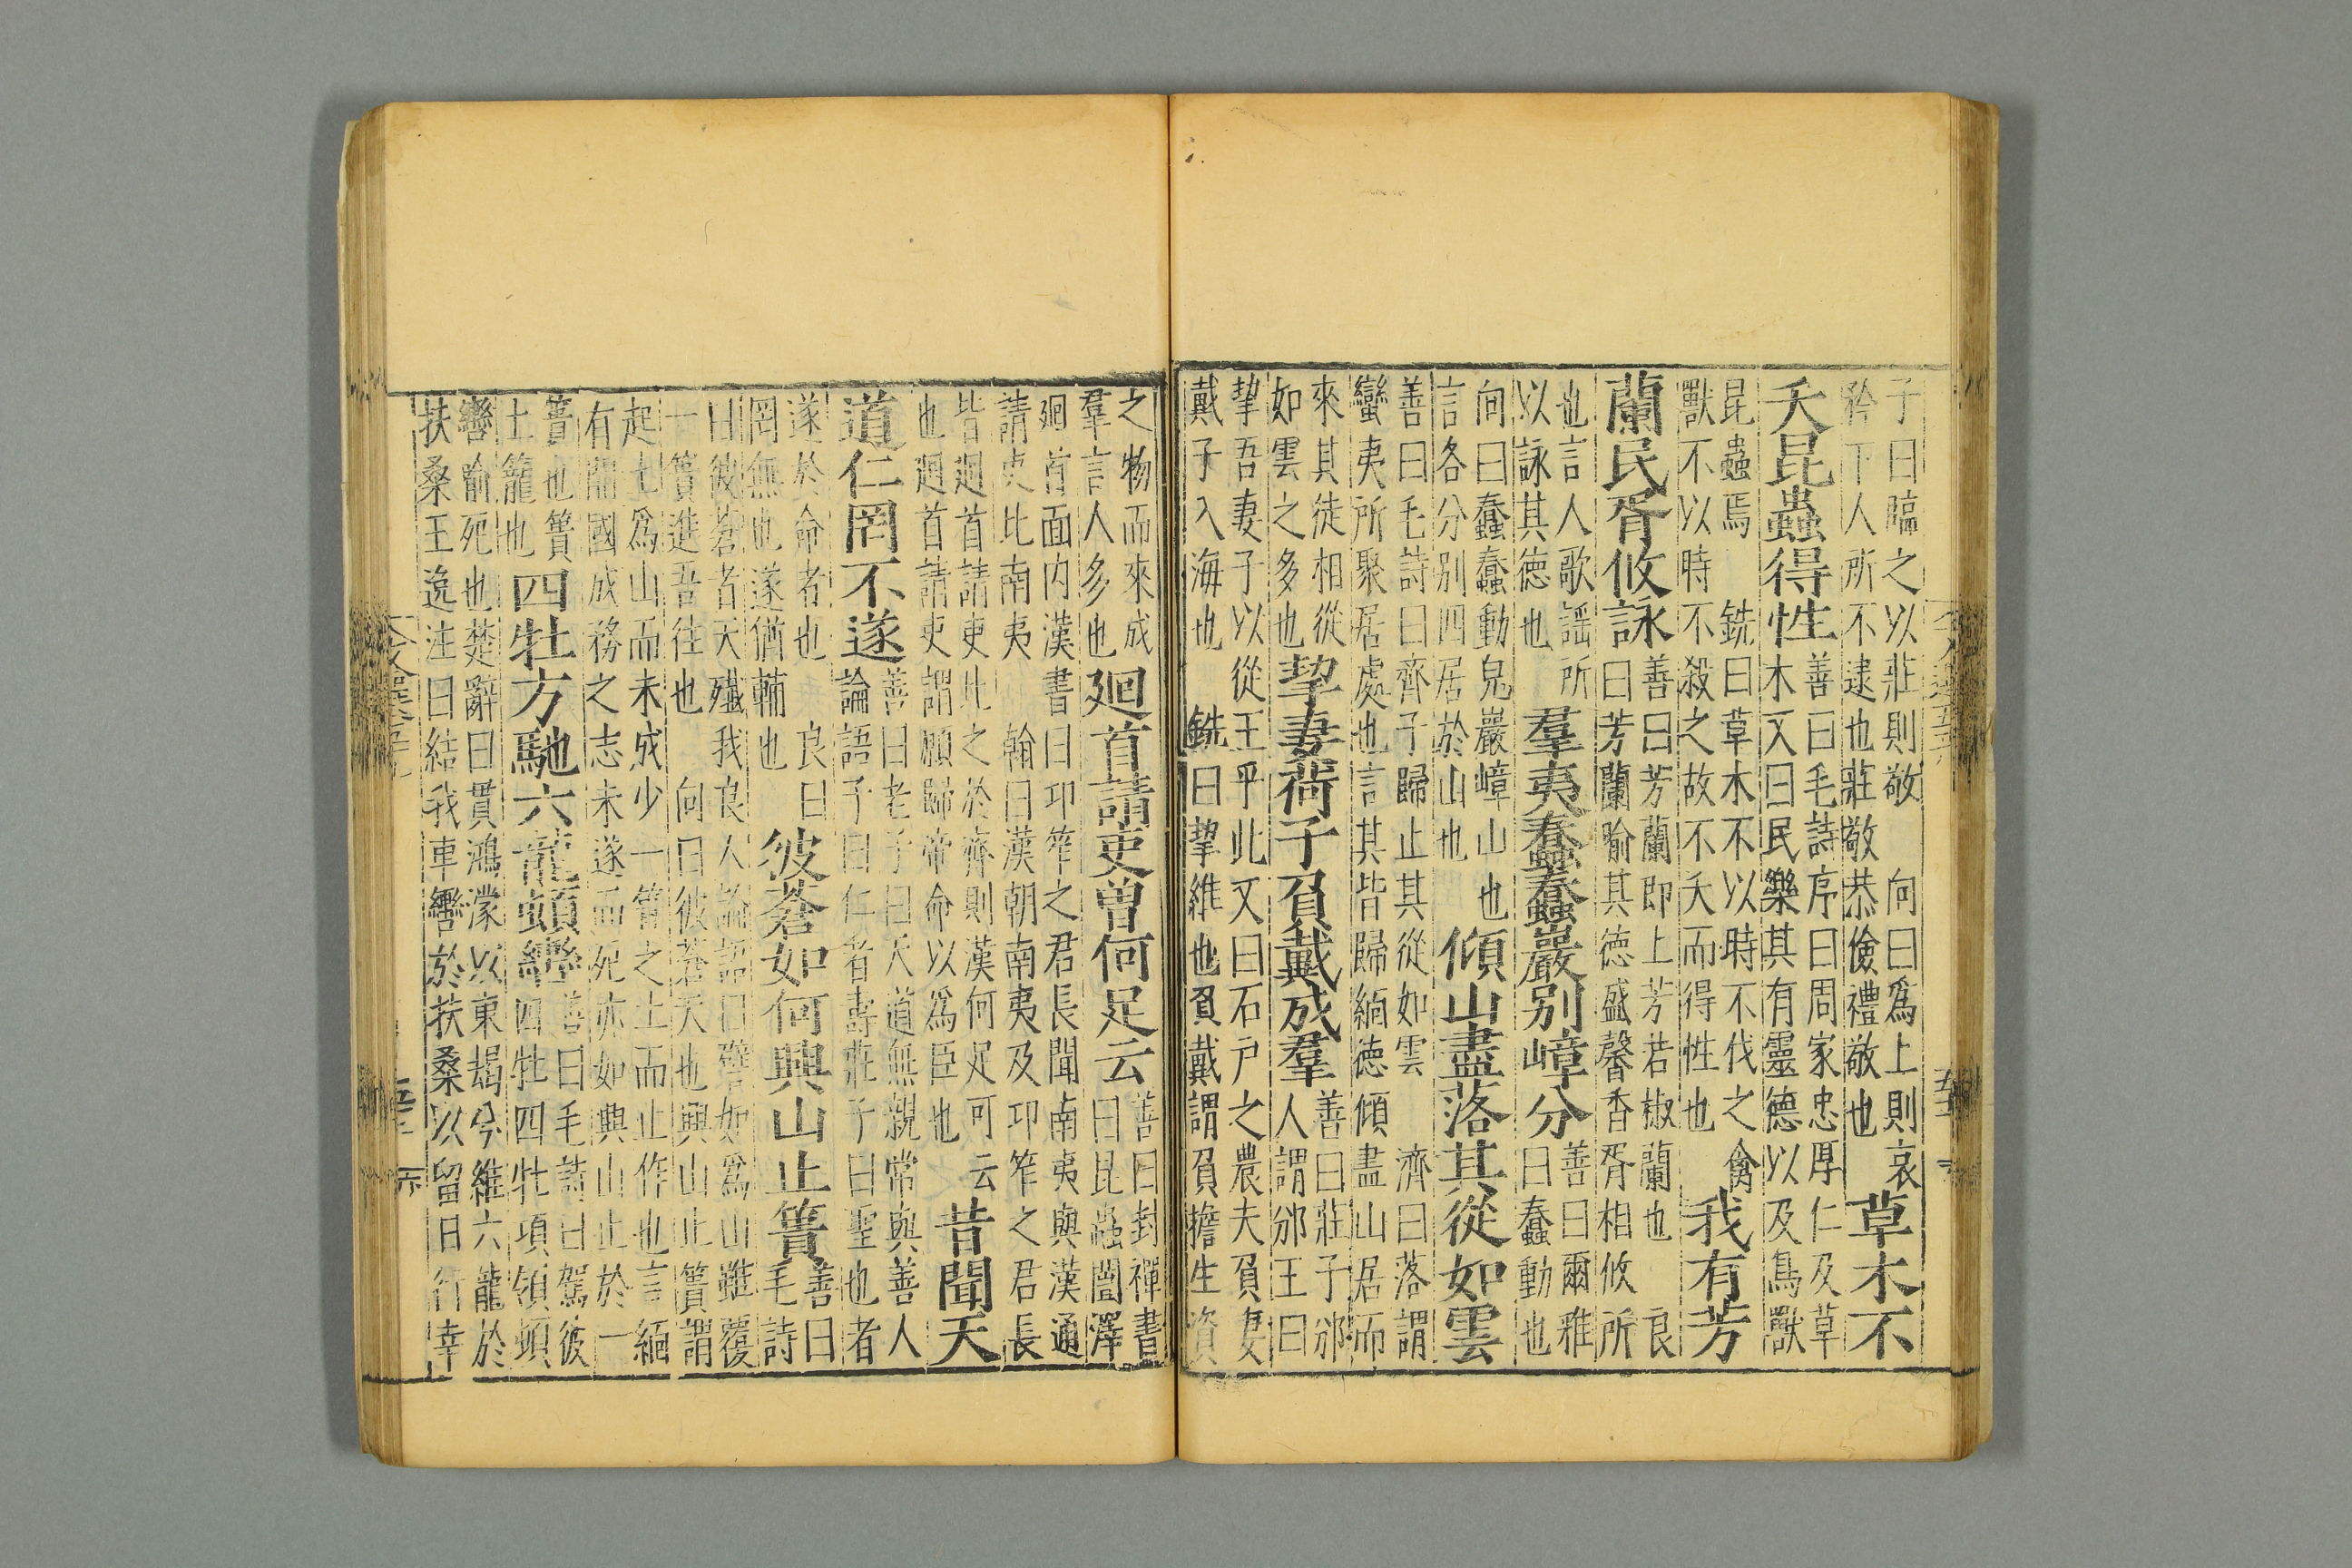 子曰臨之以莊則敬　向曰爲上則哀
矜下人所不逮也莊敬恭儉禮敬也
草木不
夭昆蟲得性
善曰毛詩序曰周家忠厚仁及草
木又曰民樂其有靈德以及鳥獸
昆蟲焉　銑曰草木不以時不伐之禽
獸不以時不殺之故不夭而得性也
我有芳
蘭民胥攸詠
善曰芳蘭即上芳若椒蘭也　良
曰芳蘭喻其德盛馨香胥相攸所
也言人歌謡所
以詠其德也
羣夷蠢蠢巖别嶂分
善曰爾雅
曰蠢動也
向曰蠢蠢動皃巖嶂山也
言各分别四居於山也
傾山盡落其從如雲
善曰毛詩曰齊子歸止其從如雲　濟曰落謂
蠻夷所聚居處也言其皆歸緬德傾盡山居而
來其徒相從
如雲之多也
挈妻荷子負戴成羣
善曰莊子邠
人謂邠王曰
挈吾妻子以從王乎此又曰石户之農夫負妻
戴子入海也　銑曰挈維也負戴謂負擔生資
之物而來成
羣言人多也
廻首請吏曾何足云
善曰封禪書
曰昆蟲闓澤
廻首面内漢書曰卭筰之君長聞南夷與漢通
請吏比南夷　翰曰漢朝南夷及卭筰之君長
皆廻首請吏比之於齊則漢何足可云
也廻首請吏謂願歸帝命以爲臣也
昔聞天
道仁罔不遂
善曰老子曰天道無親常與善人
論語子曰仁者壽莊子曰聖也者
遂於命者也　良曰
罔無也遂猶輔也
彼蒼如何興山止簣
善曰
毛詩
曰彼蒼者天殱我良人論語曰譬如爲山雖覆
一簣進吾往也　向曰彼蒼天也興山止簣謂
起土爲山而未成少一簣之土而止作也言緬
有開國成務之志未遂而死亦如興山止於一
簣也簣
土籠也
四牡方馳六龍頓轡
善曰毛詩曰駕彼
四牡四牡項領頓
轡喻死也楚辭曰貫鴻濛以東朅兮維六龍於
扶桑王逸注曰結我車轡於扶桑以留日行幸